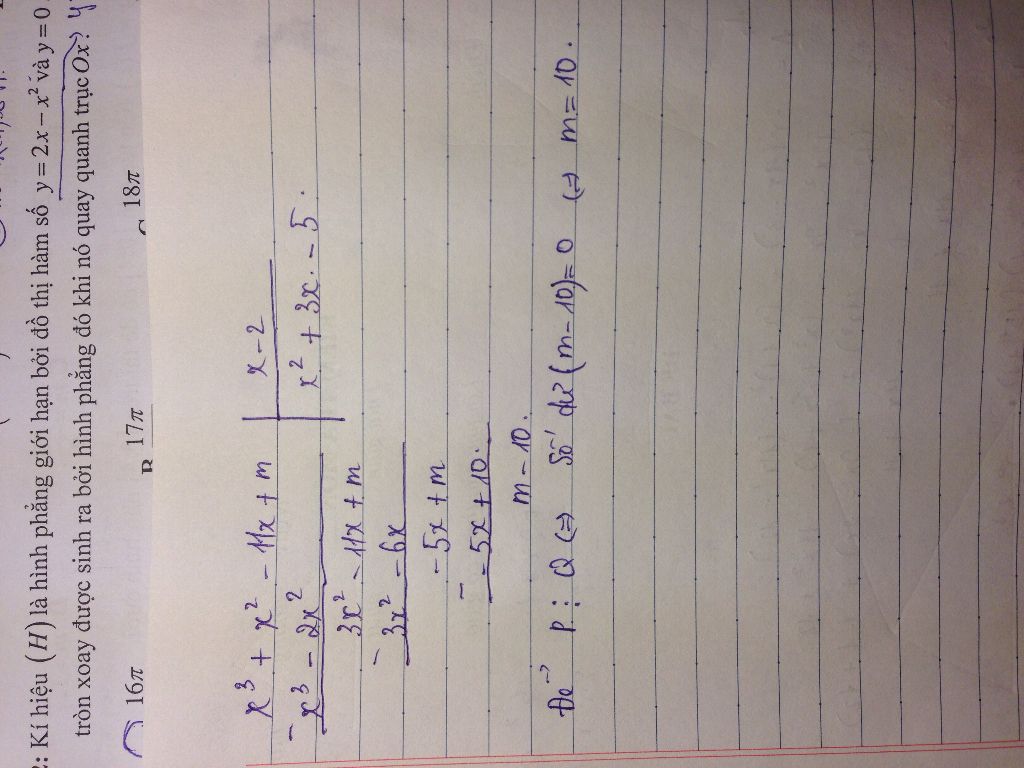 2: Kí hiệu (H) là hình phẳng giới hạn bởi đồ thị hàm số y = 2x - x² và y = 0
tròn xoay được sinh ra bởi hình phẳng đó khi nó quay quanh trục Ox? y
16π B 17π C 18π
x³ + x² - 11x + m | x - 2
- x³ - 2x² | x² + 3x - 5.
3x² - 11x + m
- 3x² - 6x
- 5x + m
- - 5x + 10.
m - 10.
Để P ⋮ Q <=> số dư (m - 10) = 0 <=> m = 10.